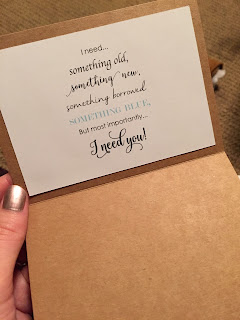 I need...
something old,
something new,
something borrowed
SOMETHING BLUE,
But most importantly...
I need you!